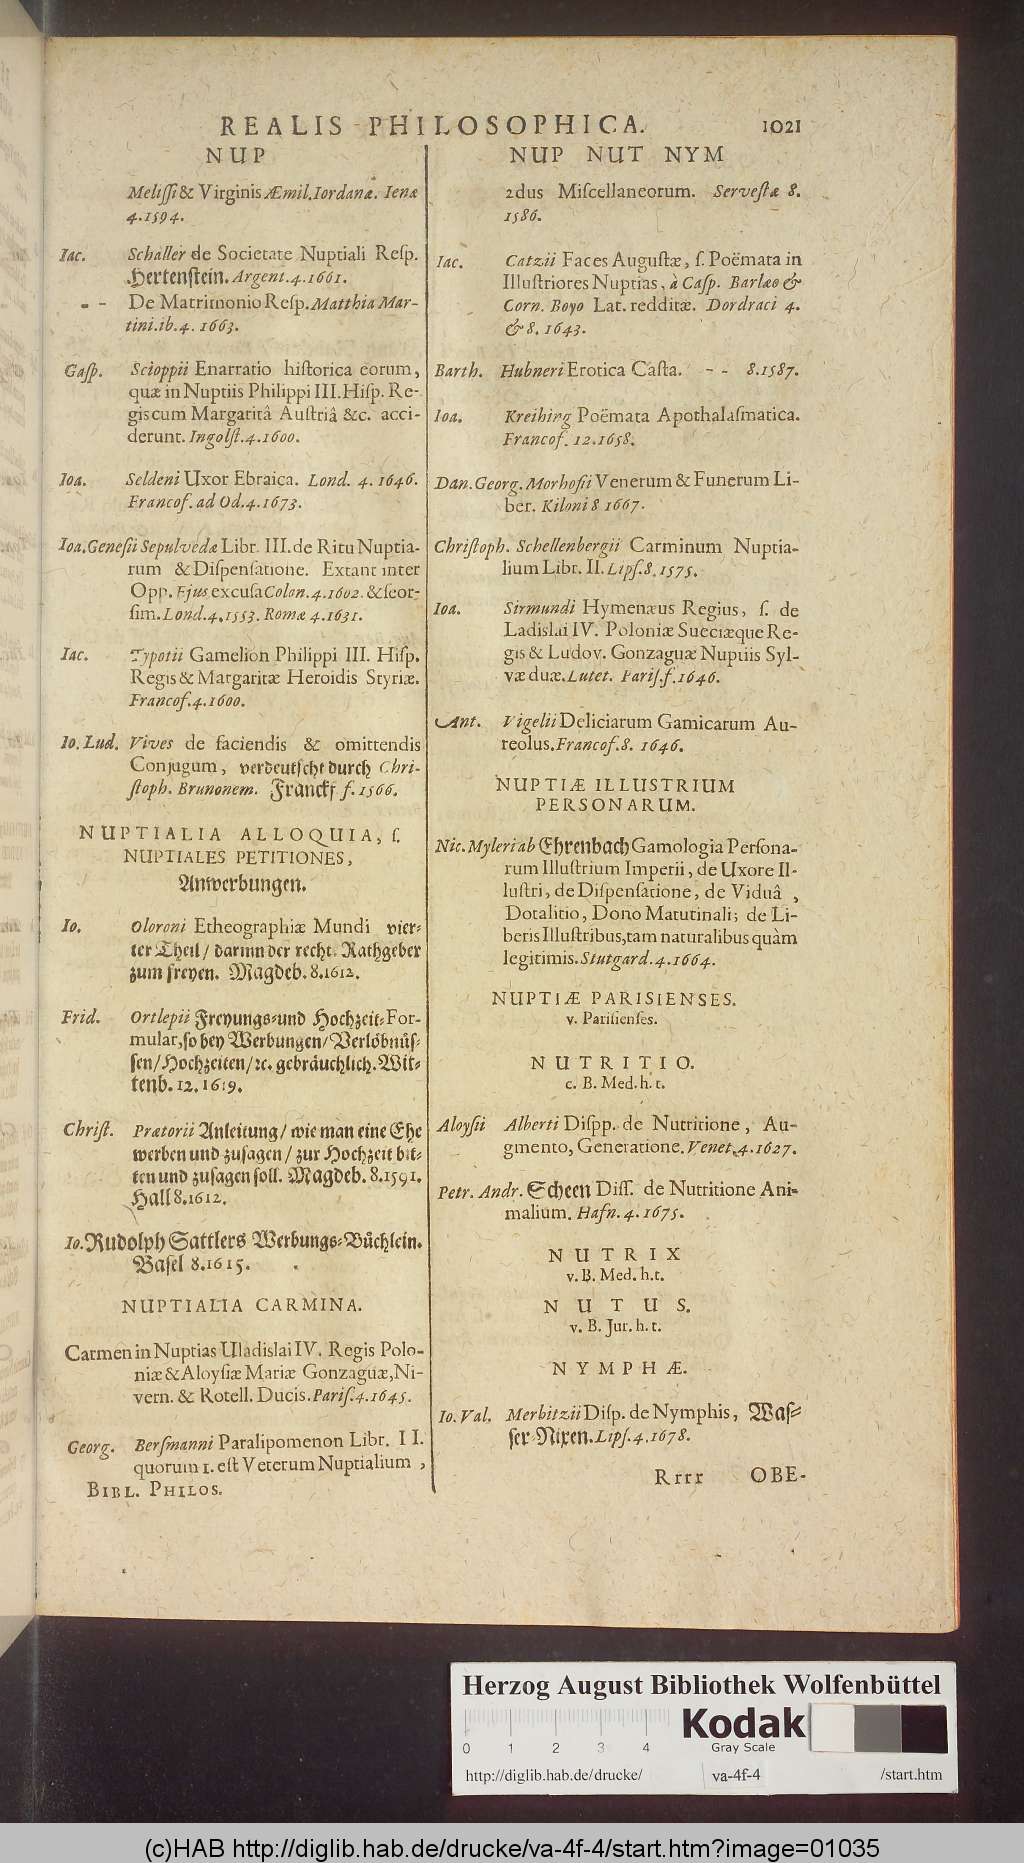 REALIS PHILOSOPHICA. 1021
NUP
Melissi & Virginis Æmil. Iordanæ. Ienæ
4. 1594.
Iac. Schaller de Societate Nuptiali Resp.
Hertenstein. Argent. 4. 1661.
- - De Matrimonio Resp. Matthia Mar-
tini. ib. 4. 1663.
Gasp. Scioppii Enarratio historica eorum,
quæ in Nuptiis Philippi III. Hisp. Re-
gis cum Margaritâ Austriâ &c. acci-
derunt. Ingolst. 4. 1600.
Ioa. Seldeni Uxor Ebraica. Lond. 4. 1646.
Francof. ad Od. 4. 1673.
Ioa. Genesii Sepulvedæ Libr. III. de Ritu Nuptia-
rum & Dispensatione. Extant inter
Opp. Ejus excusa Colon. 4. 1602. & seor-
sim. Lond. 4. 1553. Romæ 4. 1631.
Iac. Typotii Gamelion Philippi III. Hisp.
Regis & Margaritæ Heroidis Styriæ.
Francof. 4. 1600.
Io. Lud. Vives de faciendis & omittendis
Conjugum, verdeutscht durch Chri-
stoph. Brunonem. Franckf f. 1566.
NUPTIALIA ALLOQUIA, s.
NUPTIALES PETITIONES,
Anwerbungen.
Io. Oloroni Etheographiæ Mundi vier-
ter Theil / darinn der recht. Rathgeber
zum freyen. Magdeb. 8. 1612.
Frid. Ortlepii Freyungs- und Hochzeit-For-
mular, so bey Werbungen / Verlöbnüs-
sen / Hochzeiten / ꝛc. gebräuchlich. Wit-
tenb. 12. 1619.
Christ. Prætorii Anleitung / wie man eine Ehe
werben und zusagen / zur Hochzeit bit-
ten und zusagen soll. Magdeb. 8. 1591.
Hall 8. 1612.
Io. Rudolph Sattlers Werbungs-Büchlein.
Basel 8. 1615.
NUPTIALIA CARMINA.
Carmen in Nuptias Uladislai IV. Regis Polo-
niæ & Aloysiæ Mariæ Gonzaguæ, Ni-
vern. & Rotell. Ducis. Paris. 4. 1645.
Georg. Bersmanni Paralipomenon Libr. II.
quorum 1. est Veterum Nuptialium,
BIBL. PHILOS.
NUP NUT NYM
2dus Miscellaneorum. Servestæ 8.
1586.
Iac. Catzii Faces Augustæ, s. Poëmata in
Illustriores Nuptias, à Casp. Barlæo &
Corn. Boyo Lat. redditæ. Dordraci 4.
& 8. 1643.
Barth. Hubneri Erotica Casta. - - 8. 1587.
Ioa. Kreihing Poëmata Apothalasmatica.
Francof. 12. 1658.
Dan. Georg. Morhofii Venerum & Funerum Li-
ber. Kiloni 8 1667.
Christoph. Schellenbergii Carminum Nuptia-
lium Libr. II. Lips. 8. 1575.
Ioa. Sirmundi Hymenæus Regius, s. de
Ladislai IV. Poloniæ Sueciæque Re-
gis & Ludov. Gonzaguæ Nuptiis Syl-
væ duæ. Lutet. Paris. f. 1646.
Ant. Vigelii Deliciarum Gamicarum Au-
reolus. Francof. 8. 1646.
NUPTIÆ ILLUSTRIUM
PERSONARUM.
Nic. Myleri ab Ehrenbach Gamologia Persona-
rum Illustrium Imperii, de Uxore Il-
lustri, de Dispensatione, de Viduâ,
Dotalitio, Dono Matutinali; de Li-
beris Illustribus, tam naturalibus quàm
legitimis. Stutgard. 4. 1664.
NUPTIÆ PARISIENSES.
v. Parisienses.
NUTRITIO.
c. B. Med. h. t.
Aloysii Alberti Dispp. de Nutritione, Au-
gmento, Generatione. Venet. 4. 1627.
Petr. Andr. Scheen Diss. de Nutritione Ani-
malium. Hafn. 4. 1675.
NUTRIX
v. B. Med. h. t.
NUTUS.
v. B. Jur. h. t.
NYMPHÆ.
Io. Val. Merbitzii Disp. de Nymphis, Was-
ser-Nixen. Lips. 4. 1678.
Rrrr OBE-
Herzog August Bibliothek Wolfenbüttel
0 1 2 3 4
Kodak
Gray Scale
http://diglib.hab.de/drucke/ va-4f-4 /start.htm
(c)HAB http://diglib.hab.de/drucke/va-4f-4/start.htm?image=01035